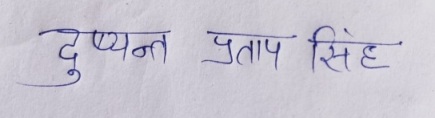 दुष्यन्त प्रताप सिंह